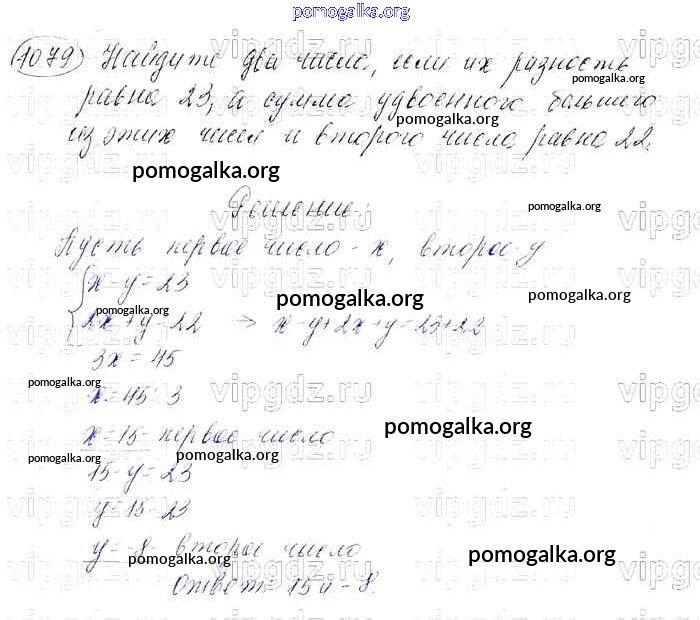 pomogalka.org
1079 Найдите два числа, если их разность
равна 23, а сумма удвоенного большего
из этих чисел и второго числа равна 22.
Решение:
Пусть первое число - x, второе - y
x - y = 23
2x + y = 22 → x - y + 2x + y = 23 + 22
3x = 45
x = 45 : 3
x = 15 - первое число
15 - y = 23
y = 15 - 23
y = -8 - второе число
Ответ: 15 и -8.
pomogalka.org
vipgdz.ru